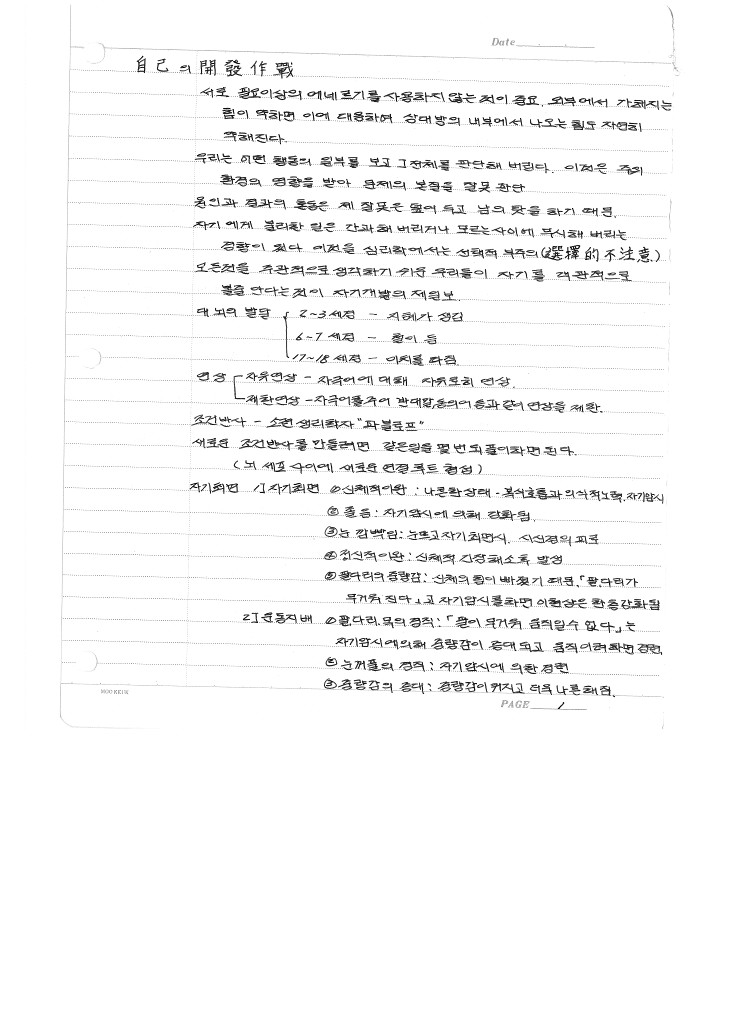 Date
自己의 開發作戰
서로 필요이상의 에네르기를 사용하지 않는 것이 중요. 외부에서 가해지는
힘이 약하면 이에 대응하여 상대방의 내부에서 나오는 힘도 자연히
약해진다.
우리는 어떤 행동의 일부를 보고 그 전체를 판단해 버린다. 이것은 주위
환경의 영향을 받아 문제의 본질을 잘못 판단
원인과 결과의 혼동은 제 잘못은 덮어 두고 남의 탓을 하기 때문.
자기에게 불리한 일은 간과해 버리거나 모르는 사이에 무시해 버리는
경향이 있다 이것을 심리학에서는 선택적 부주의(選擇的不注意)
모든것을 주관적으로 생각하기 쉬운 우리들이 자기를 객관적으로
볼줄 안다는 것이 자기개발의 제일보.
대뇌의 발달 2~3세경 - 지혜가 생김
6~7세경 - 철이 듬
17~18세경 - 이치를 따짐
연상 자유연상 - 자극어에 대해 자유로히 연상.
제한연상 - 자극어를 주어 반대말, 동의어 등과 같이 연상을 제한.
조건반사 - 소련 생리학자 "파블로프"
새로운 조건반사를 만들려면 같은일을 몇 번 되풀이하면 된다.
(뇌 세포 사이에 새로운 연결 루트 형성)
자기최면 1] 자기최면 ① 신체적이완 : 나른한 상태 - 복식호흡과 의식적노력, 자기암시
② 졸음 : 자기암시에 의해 강화됨.
③ 눈 깜빡임 : 눈뜨고 자기최면시, 시신경의 피로
④ 정신적이완 : 신체적 긴장해소후 발생
⑤ 팔다리의 중량감 : 신체의 힘이 빠졌기 때문, 「팔, 다리가
무거워 진다」고 자기암시를 하면 이현상은 한층강화됨
2] 운동지배 ① 팔, 다리, 목의 경직 : 「팔이 무거워 움직일수 없다」는
자기암시에 의해 중량감이 증대되고 움직이려하면 경련
② 눈꺼풀의 경직 : 자기암시에 의한 경련
③ 중량감의 증대 : 중량감이 커지고 더욱 나른해짐.
MOOREUK
PAGE 1